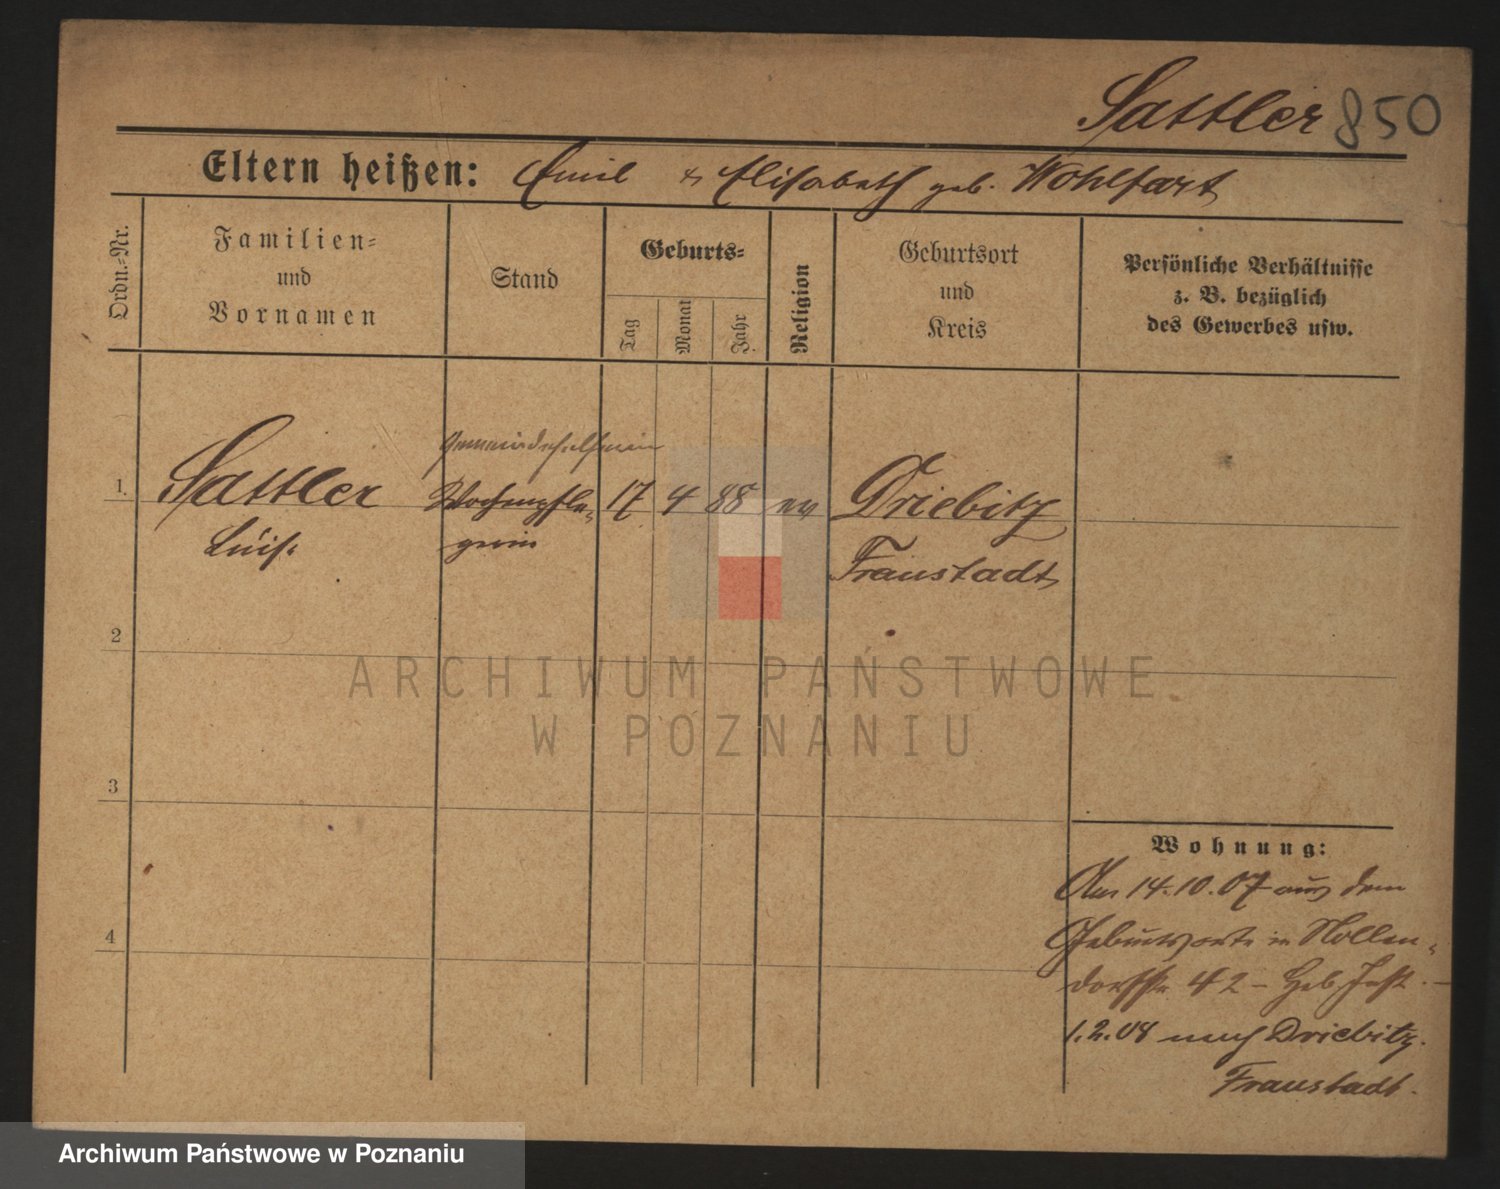 Sattler 850
Eltern heißen: Emil & Elisabeth geb. Wohlfart
Ordn.-Nr.
Familien-
und
Vornamen
Stand
Geburts-
Tag
Monat
Jahr
Religion
Geburtsort
und
Kreis
Persönliche Verhältnisse
z. B. bezüglich
des Gewerbes usw.
1. Sattler Wochenpfle- 17 4 88 ev Driebitz
Luise gerin Fraustadt
2
3
4
Wohnung:
Am 14.10.07 aus dem
Geburtsorte in Nollen-
dorfstr 42 -
1.2.08 nach Driebitz.
Fraustadt.
ARCHIWUM PAŃSTWOWE
W POZNANIU
Archiwum Państwowe w Poznaniu